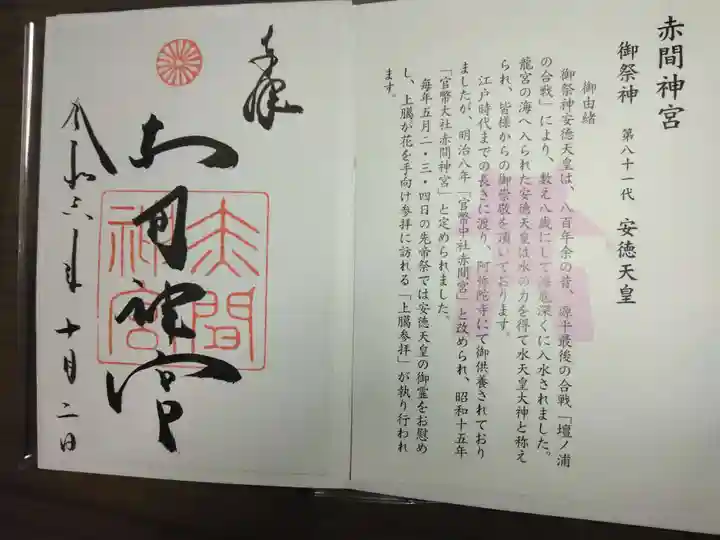 赤間神宮
御祭神 第八十一代 安徳天皇
御由緒
御祭神安徳天皇は、八百年余の昔、源平最後の合戦「壇ノ浦
の合戦」により、数え八歳にして海底深くに入水されました。
龍宮の海へ入られた安徳天皇は水の力を得て水天皇大神と称え
られ、皆様からの御崇敬を頂いております。
江戸時代までの長きに渡り、阿弥陀寺にて御供養されており
ましたが、明治八年「官幣中社赤間宮」と改められ、昭和十五年
「官幣大社赤間神宮」と定められました。
毎年五月二・三・四日の先帝祭では安徳天皇の御霊をお慰め
し、上臈が花を手向け参拝に訪れる「上臈参拝」が執り行われ
ます。
奉拝
赤間神宮
赤間
神宮
令和六年十月二日